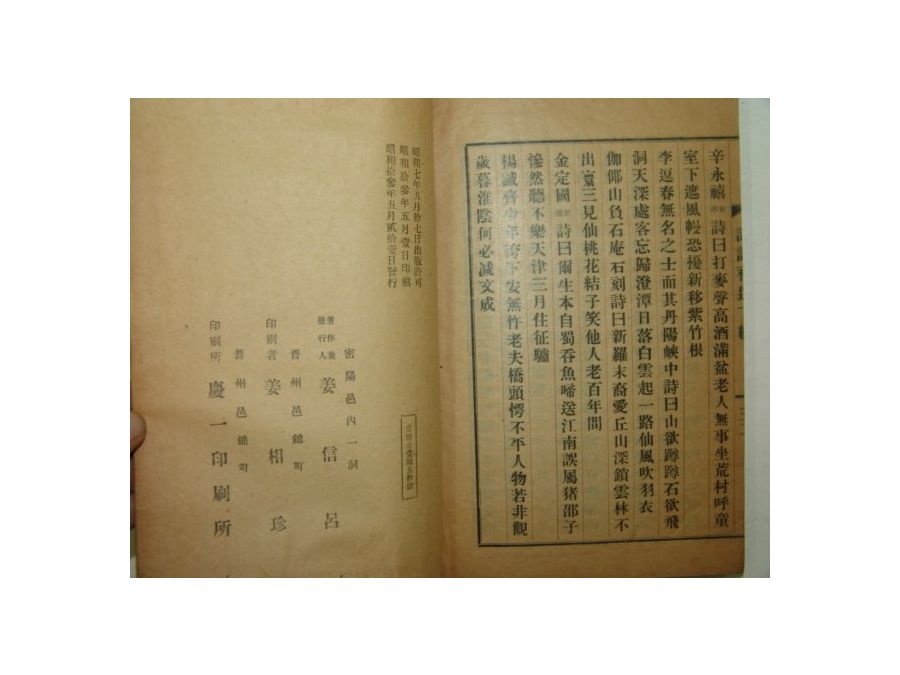 辛永禧詩曰打麥聲高酒滿盆老人無事坐荒村呼童
室下遮風幔恐擾新移紫竹根
李逗春無名之士而其丹陽峽中詩曰山欲蹲蹲石欲飛
洞天深處客忘歸澄潭日落白雲起一路仙風吹羽衣
伽倻山負石庵石刻詩曰新羅末裔愛丘山深鎖雲林不
出寰三見仙桃花結子笑他人老百年間
金定國詩曰爾生本自蜀呑魚啼送江南誤屬猪邵子
慘然聽不樂天津三月住征驢
楊誠齊少年胯下安無忤老夫橋頭愕不平人物若非觀
歲暮淮陰何必减文成
昭和七年五月拾七日出版許可
昭和拾參年五月壹日印刷
昭和拾參年五月貳拾壹日發行
密陽邑內一洞
著作兼發行人 姜信呂
晋州邑錦町
印刷者 姜相珍
晋州邑錦町
印刷所 慶一印刷所